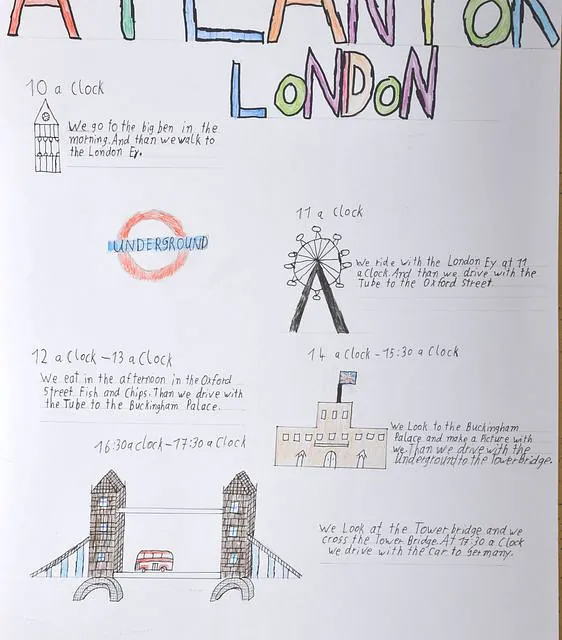 A T LANT OR
LONDON
10 a Clock
We go to the big ben in the
morning. And than we walk to
the London Ey.
UNDERGROUND
11 a Clock
We ride with the London Ey at 11
a Clock. And than we drive with the
Tube to the Oxford Street.
12 a Clock – 13 a Clock
We eat in the afternoon in the Oxford
Street Fish and Chips. Than we drive with
the Tube to the Buckingham Palace.
14 a Clock – 15:30 a Clock
We Look to the Buckingham
Palace and make a Picture with
we. Than we drive with the
Underground to the Tower bridge.
16:30 a Clock – 17:30 a Clock
We Look at the Tower bridge and we
cross the Tower Bridge. At 17:30 a Clock
we drive with the car to Germany.